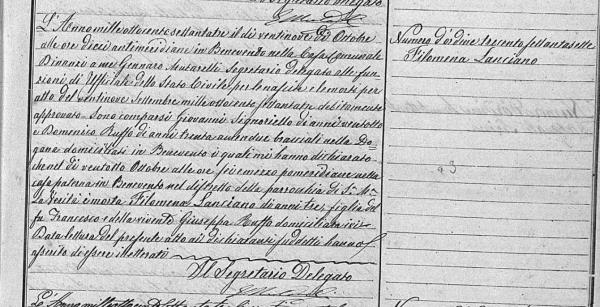 Il Segretario Delegato
L'Anno mille ottocento settantatre il dì ventinove di Ottobre
alle ore dieci antimeridiane in Benevento nella Casa Comunale
Dinanzi a me Gennaro Mutarelli Segretario delegato alle fun=
zioni di Uffiziale dello Stato Civile per le nascite e le morti per
atto del ventinove Settembre mille ottocento settantatre debitamente
approvato = Sono comparsi Giovanni Signoriello di anni ventotto
e Domenico Ruffo di anni trenta amendue bracciali nella Do=
gana domiciliati in Benevento i quali mi hanno dichiarato
che nel dì ventotto Ottobre alle ore sei e mezzo pomeridiane nella
casa paterna in Benevento nel distretto della parrocchia di S.a M.a
la Verità è morta Filomena Lanciano di anni tre, figlia del
fu Francesco e della vivente Giuseppa Ruffo domiciliata ivi =
Data lettura del presente atto ai dichiaranti sudetti hanno
asserito di essere illetterati
Il Segretario Delegato
L'Anno mille ottocento settantatre
Numero d'ordine trecento settantasette
Filomena Lanciano